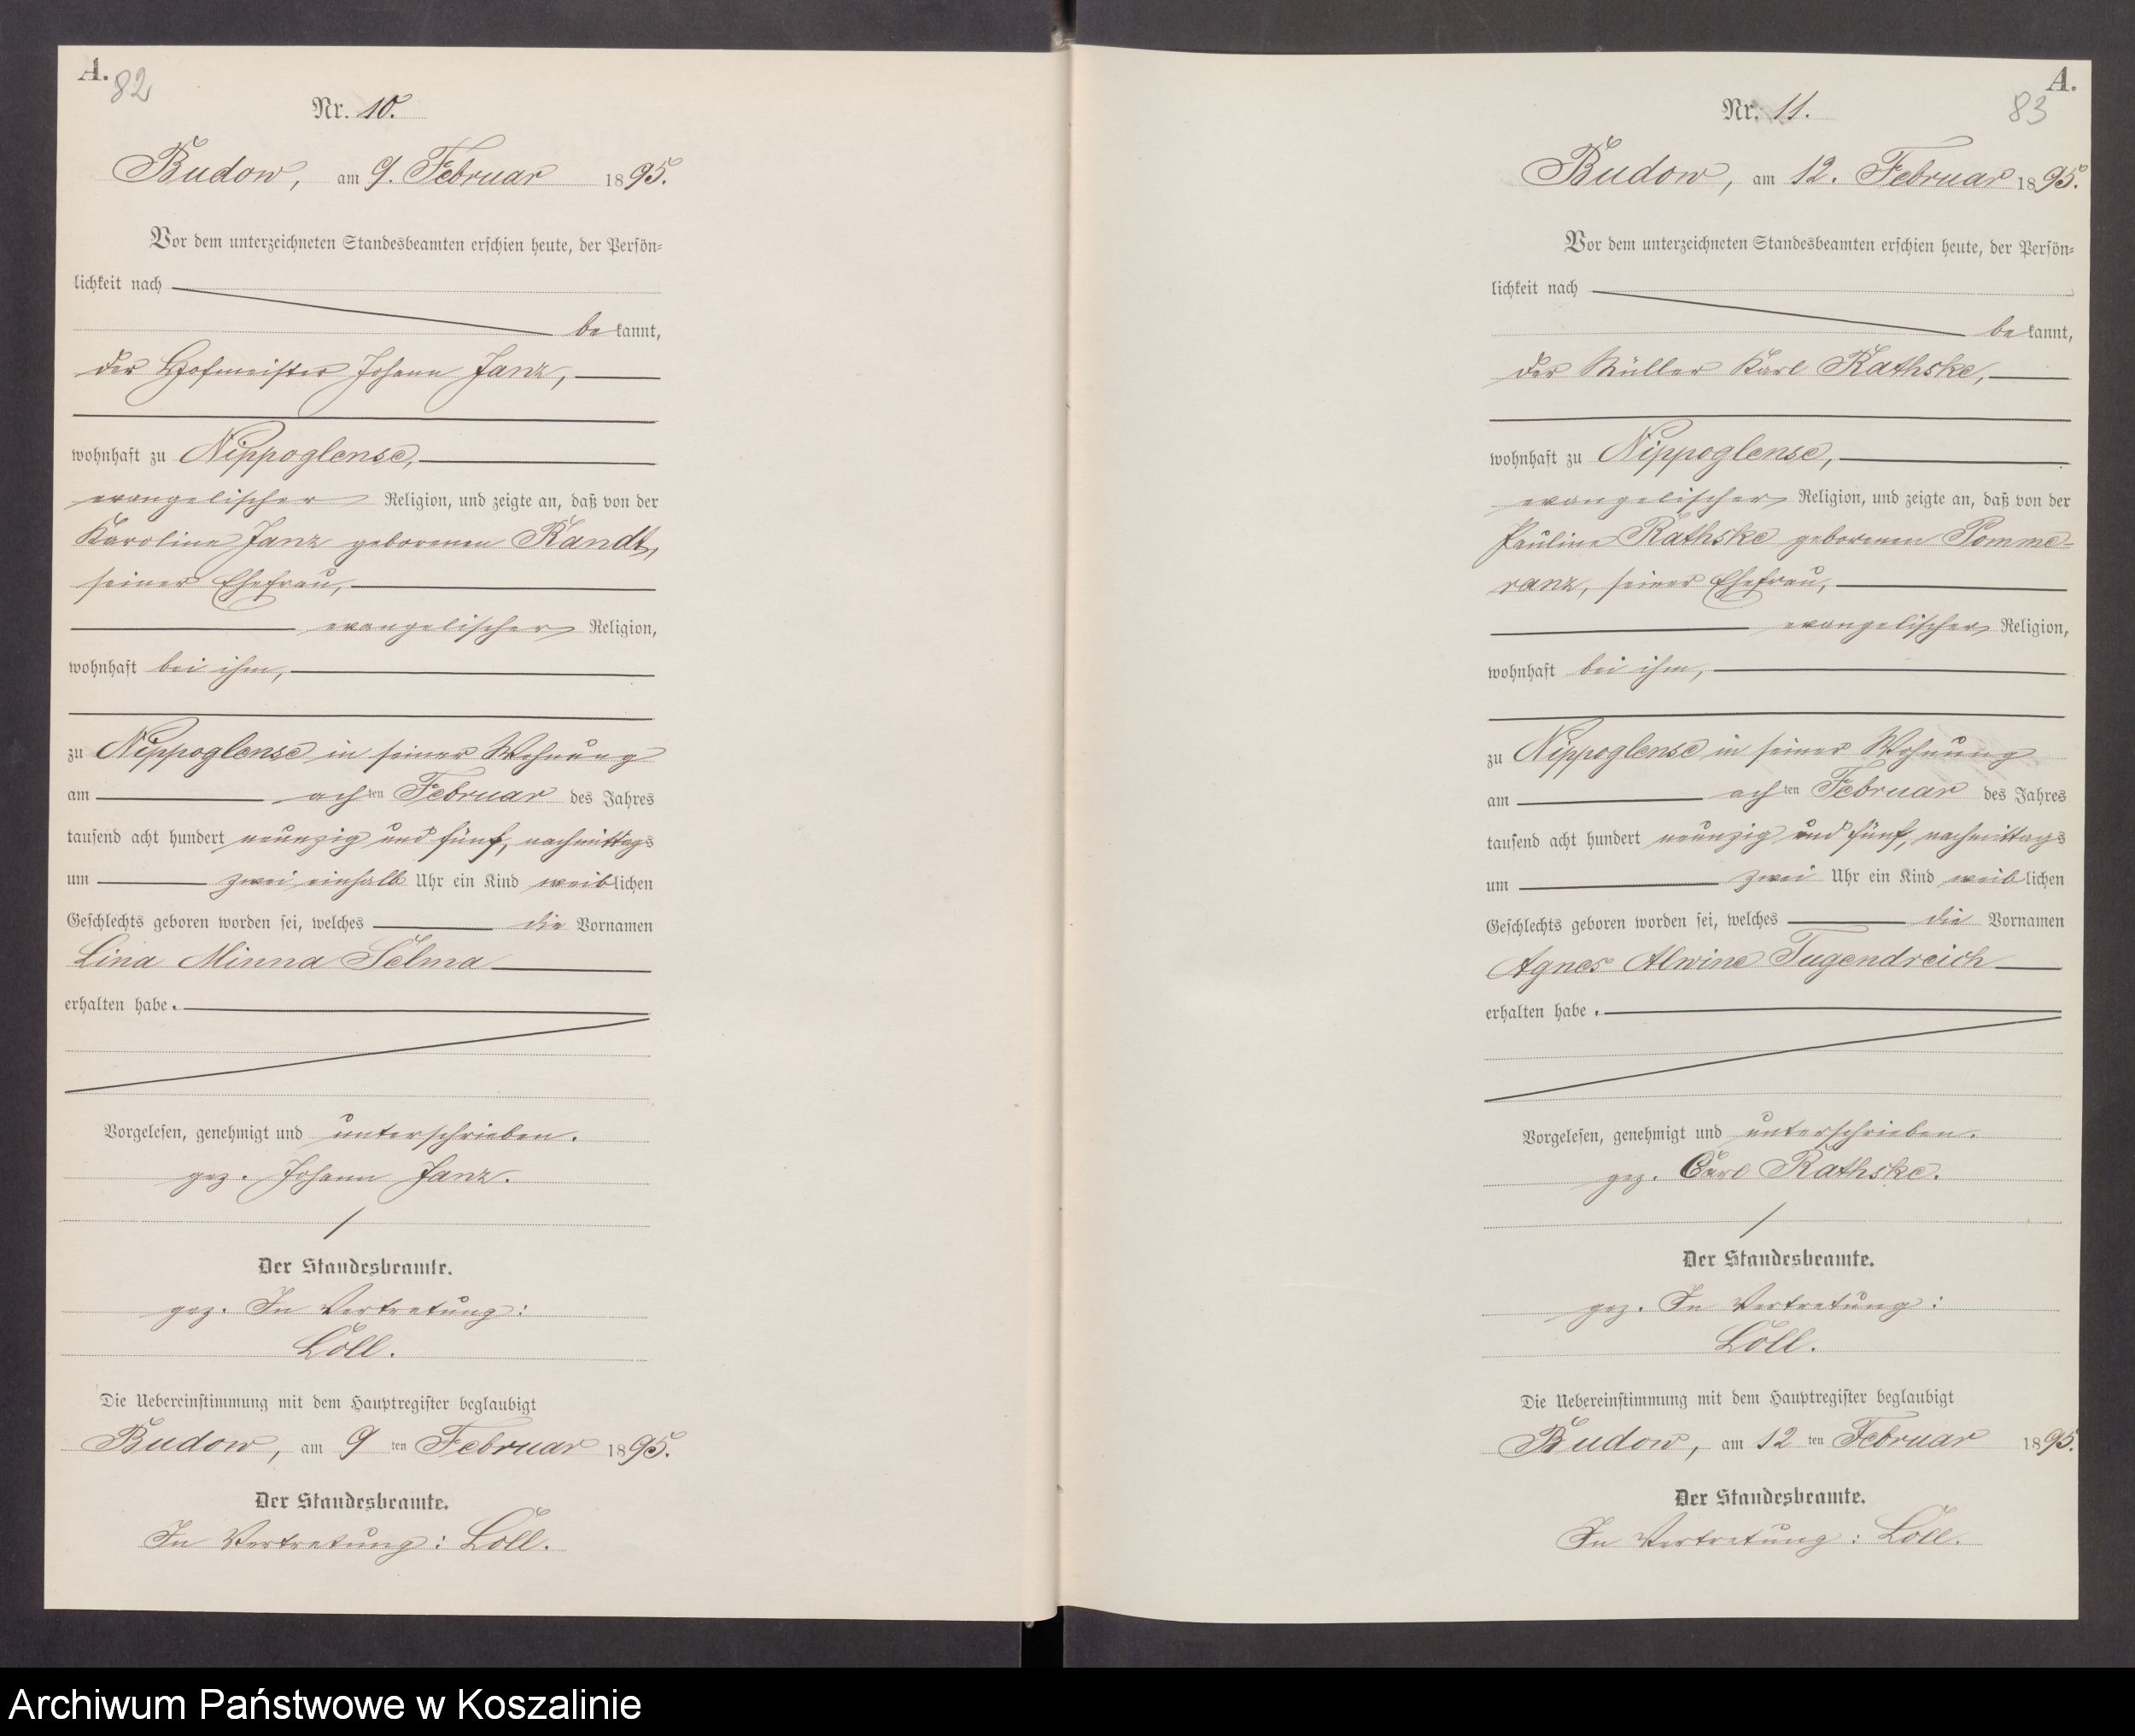 A.
82
Nr. 10.
Budow, am 9. Februar 1895.
Vor dem unterzeichneten Standesbeamten erschien heute, der Persön-
lichkeit nach
be kannt,
der Hofmeister Johann Janz,
wohnhaft zu Nippoglense,
evangelischer Religion, und zeigte an, daß von der
Karoline Janz geborenen Kandt,
seiner Ehefrau,
evangelischer Religion,
wohnhaft bei ihm,
zu Nippoglense in seiner Wohnung
am achten Februar des Jahres
tausend acht hundert neunzig und fünf, nachmittags
um zwei einhalb Uhr ein Kind weiblichen
Geschlechts geboren worden sei, welches die Vornamen
Lina Minna Selma
erhalten habe.
Vorgelesen, genehmigt und unterschrieben.
gez. Johann Janz.
Der Standesbeamte.
gez. In Vertretung:
Löll.
Die Uebereinstimmung mit dem Hauptregister beglaubigt
Budow, am 9 ten Februar 1895.
Der Standesbeamte.
In Vertretung: Löll.
A.
83
Nr. 11.
Budow, am 12. Februar 1895.
Vor dem unterzeichneten Standesbeamten erschien heute, der Persön-
lichkeit nach
be kannt,
der Müller Karl Rathske,
wohnhaft zu Nippoglense,
evangelischer Religion, und zeigte an, daß von der
Pauline Rathske geborenen Pomme-
ranz, seiner Ehefrau,
evangelischer Religion,
wohnhaft bei ihm,
zu Nippoglense in seiner Wohnung
am achten Februar des Jahres
tausend acht hundert neunzig und fünf, nachmittags
um zwei Uhr ein Kind weiblichen
Geschlechts geboren worden sei, welches die Vornamen
Agnes Alwine Tugendreich
erhalten habe.
Vorgelesen, genehmigt und unterschrieben.
gez. Carl Rathske.
Der Standesbeamte.
gez. In Vertretung:
Löll.
Die Uebereinstimmung mit dem Hauptregister beglaubigt
Budow, am 12 ten Februar 1895.
Der Standesbeamte.
In Vertretung: Löll.
Archiwum Państwowe w Koszalinie